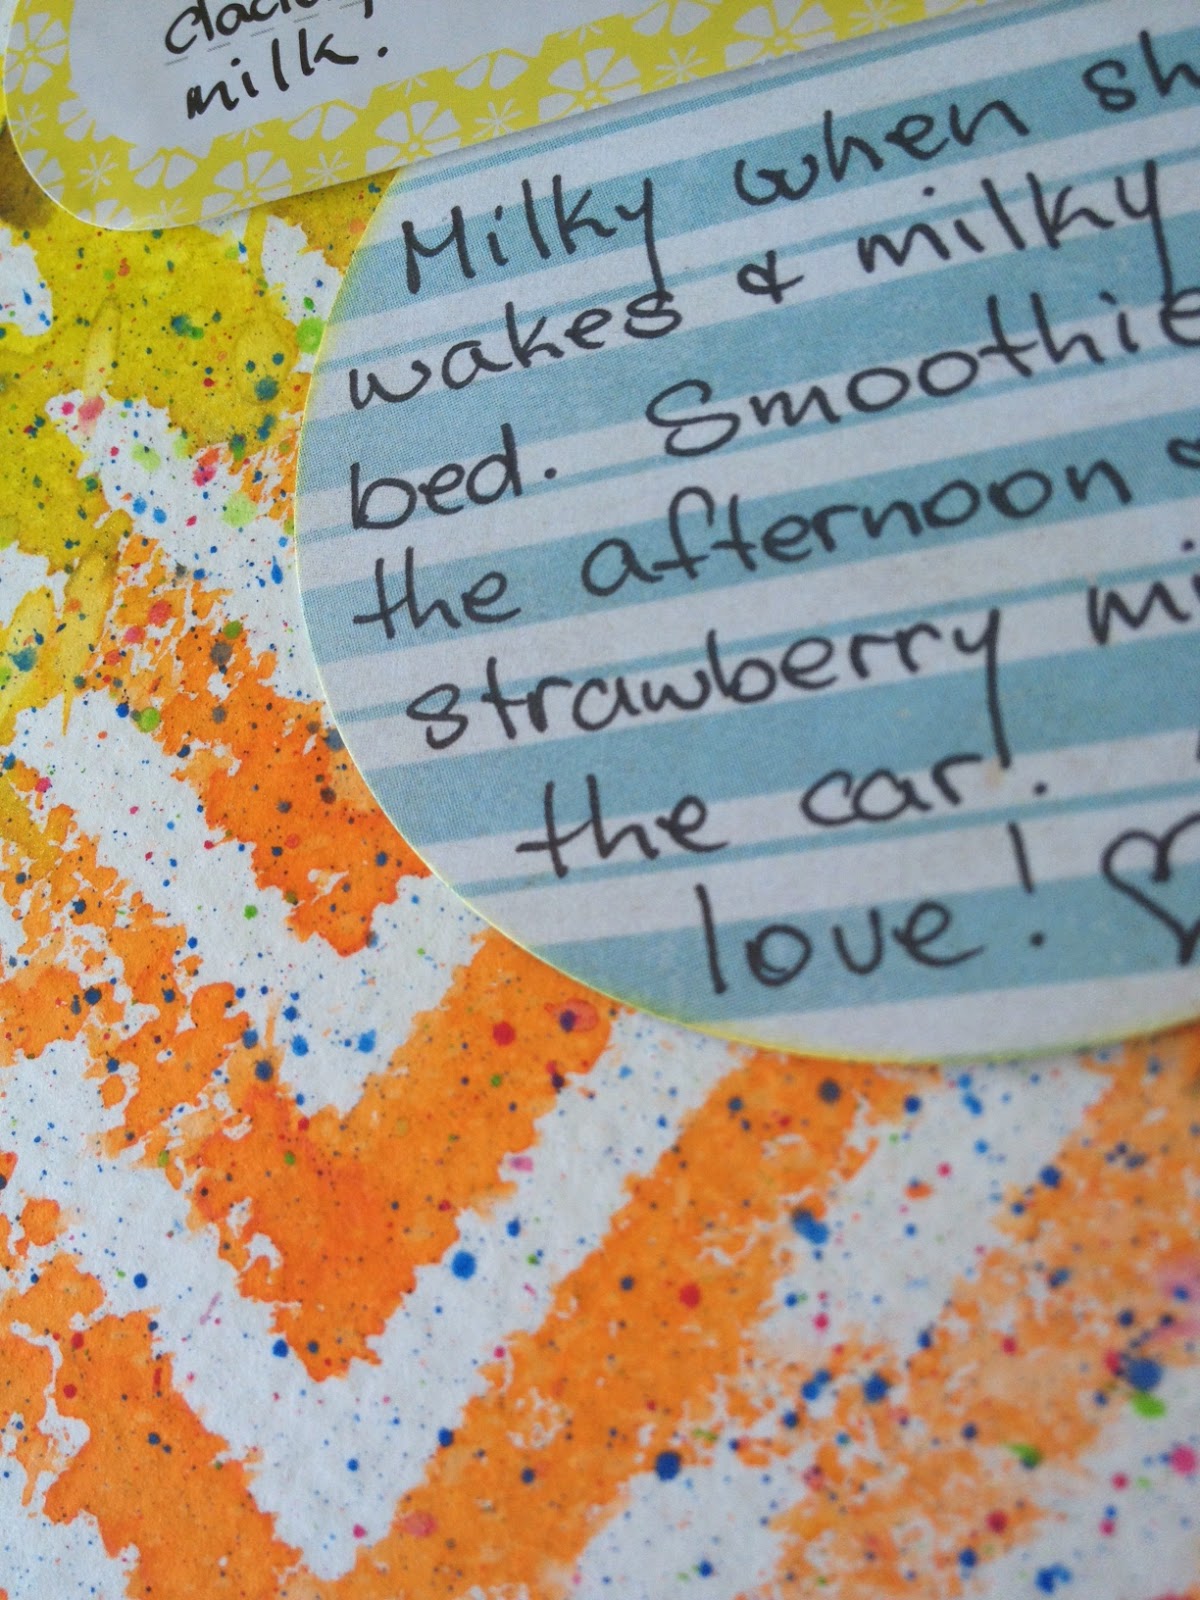 milk.
Milky when sh
wakes & milky
bed. Smoothie
the afternoon &
strawberry mi
the car!
love! ♡